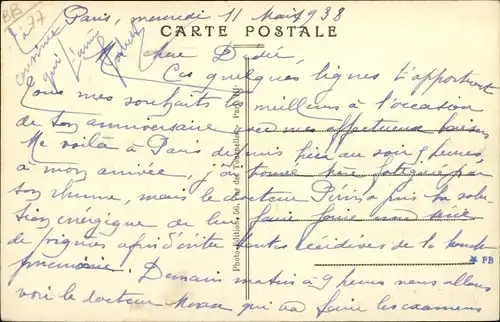 BB
Paris, mercredi 11 Mai 1938
Ta
cousine
qui t'aime
CARTE POSTALE
Chère Dédée,
Ces quelques lignes t'apportent
Tous mes souhaits les meilleurs à l'occasion
de ton anniversaire avec mes affectueux baisers
Me voilà à Paris depuis hier au soir 9 heures,
à mon arrivée, j'ai
rhume, mais le docteur
énergique de lui faire faire une
de piqûres afin d'éviter toutes récidives de la
pneumonie. Demain matin à 9 heures nous allons
voir le docteur qui va faire les examens
Photo-Edition, 56, rue des Tournelles, Paris
PB